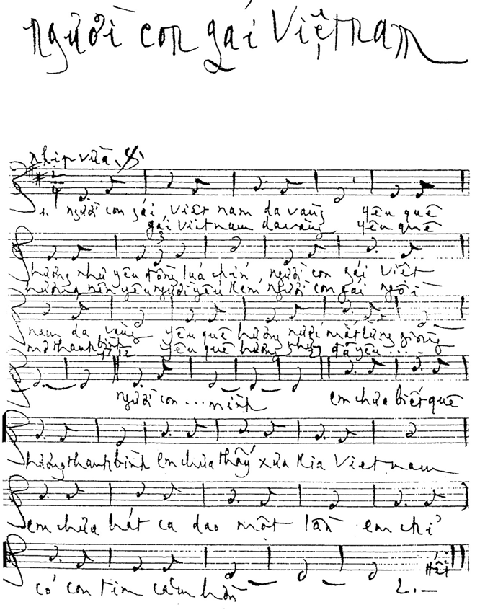 người con gái Việt nam
nhịp vừa
1. người con gái việt nam da vàng yêu quê
gái Việt nam da vàng yêu quê
hương như yêu đồng lúa chín người con gái việt
hương nên yêu người yếu kém người con gái ngồi
nam da vàng yêu quê hương nước mắt lưng giòng
mơ thanh bình yêu quê hương đã yêu
người con ... mình em chưa biết quê
hương thanh bình em chưa thấy xưa kia Việt nam
em chưa hát ca dao một lần em chỉ
có con tim căm hờn Hết
2. —